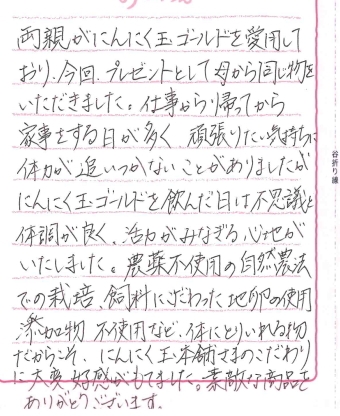 両親がにんにく玉ゴールドを愛用して
おり、今回、プレゼントとして母から同じ物を
いただきました。仕事から帰ってから
家事をする日が多く、頑張りたい気持ちに
体力が追いつかないことがありましたが
にんにく玉ゴールドを飲んだ日は不思議と
体調が良く、活力がみなぎる心地が
いたしました。農薬不使用の自然農法
での栽培、飼料にこだわった地卵の使用
添加物不使用など、体にとりいれる物
だからこそ、にんにく玉本舗さまのこだわり
に大変好感がもてました。素敵な商品を
ありがとうございます。
谷折り線